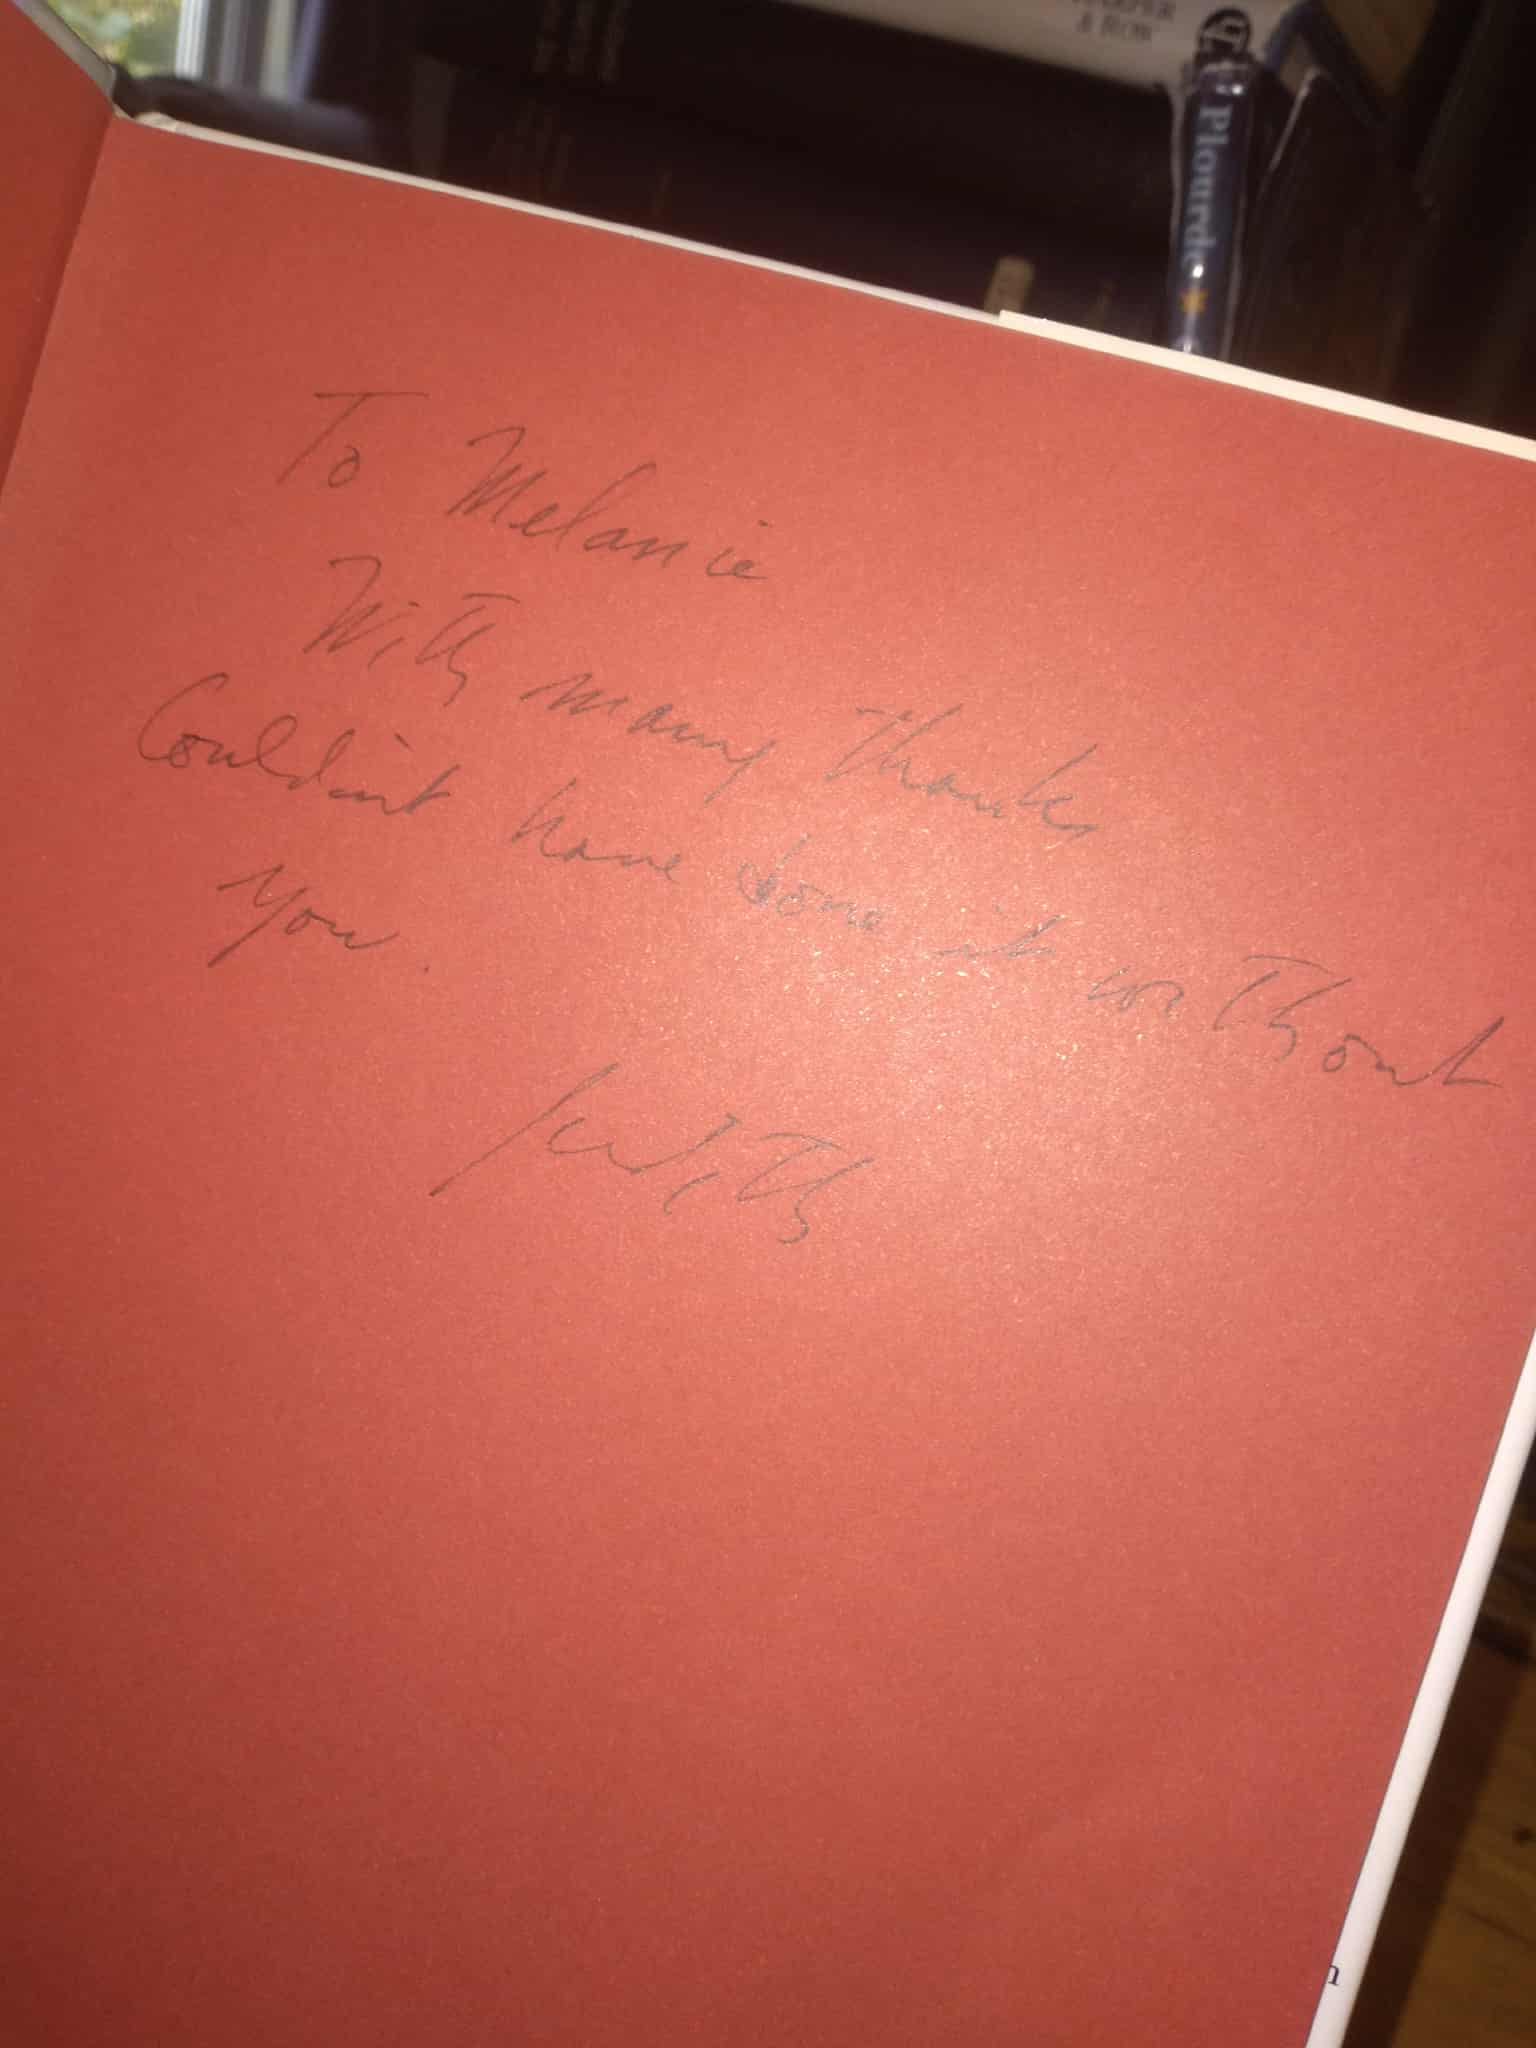 & ROW
Plourde
To Melanie
With many thanks
Couldn't have done it without
you.
Judith
n